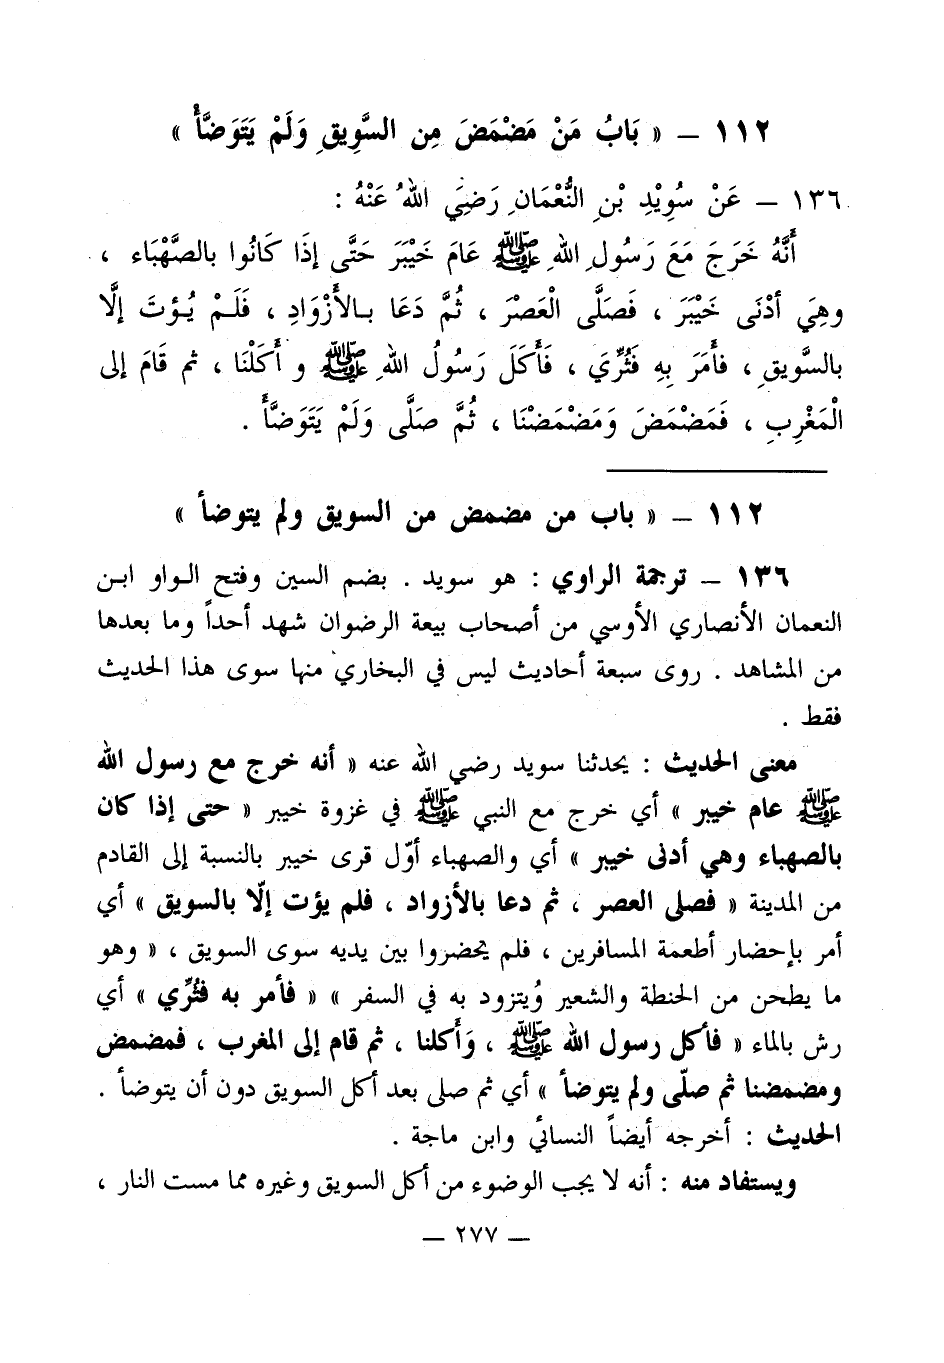 ١١٢ ــ « بَابُ مَنْ مَضْمَضَ مِن السَّوِيقِ وَلَمْ يَتَوَضَّأْ »
١٣٦ ــ عَنْ سُوِيْدِ بْنِ النُّعْمَانِ رَضِيَ اللهُ عَنْهُ :
أَنَّهُ خَرَجَ مَعَ رَسُولِ اللهِ ﷺ عَامَ خَيْبَرَ حَتَّى إذَا كَانُوا بالصَّهْبَاء ،
وهِيَ أدْنَى خَيْبَرَ ، فَصَلَّى الْعَصْرَ ، ثُمَّ دَعَا بـالأَزْوَادِ ، فَلَـمْ يُـؤتَ إلَّا
بالسَّويقِ ، فأَمَرَ بِهِ فَثُرِّيَ ، فَأَكَلَ رَسُولُ اللهِ ﷺ و أَكَلْنَا ، ثم قَامَ إلى
الْمَغْرِبِ ، فَمَضْمَضَ وَمَضْمَضْنَا ، ثُمَّ صَلَّى وَلَمْ يَتَوَضَّأْ .
١١٢ ــ « باب من مضمض من السويق ولم يتوضأ »
١٣٦ ــ ترجمة الراوي : هو سويد . بضم السين وفتح الـواو ابـن
النعمان الأنصاري الأوسي من أصحاب بيعة الرضوان شهد أحداً وما بعدها
من المشاهد . روى سبعة أحاديث ليس في البخاري منها سوى هذا الحديث
فقط .
معنى الحديث : يحدثنا سويد رضي الله عنه « أنه خرج مع رسول الله
ﷺ عام خيبر » أي خرج مع النبي ﷺ في غزوة خيبر « حتى إذا كان
بالصهباء وهي أدنى خيبر » أي والصهباء أوّل قرى خيبر بالنسبة إلى القادم
من المدينة « فصلى العصر ، ثم دعا بالأزواد ، فلم يؤت إلّا بالسويق » أي
أمر بإحضار أطعمة المسافرين ، فلم يحضروا بين يديه سوى السويق ، « وهو
ما يطحن من الحنطة والشعير وُيتزود به في السفر » « فأمر به فثُرِّي » أي
رش بالماء « فأكل رسول الله ﷺ ، وَأكلنا ، ثم قام إلى المغرب ، فمضمض
ومضمضنا ثم صلّى ولم يتوضأ » أي ثم صلى بعد أكل السويق دون أن يتوضأ .
الحديث : أخرجه أيضاً النسائي وابن ماجة .
ويستفاد منه : أنه لا يجب الوضوء من أكل السويق وغيره مما مست النار ،
ــ ٢٧٧ ــ